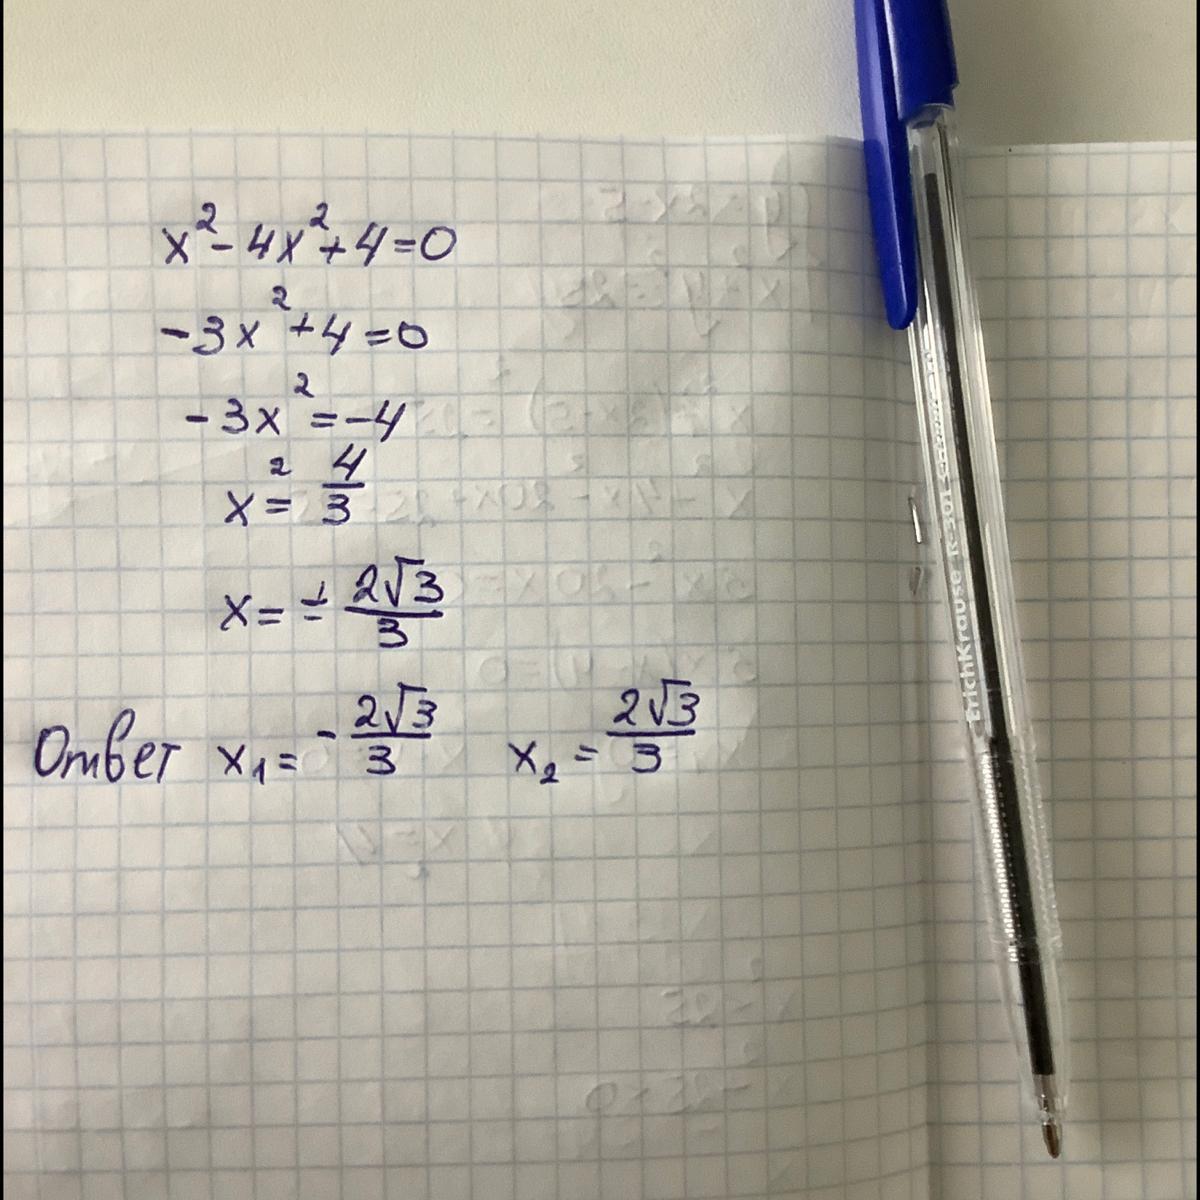 x²-4x²+4=0
-3x²+4=0
-3x²=-4
x²=4/3
x=±2√3/3
Ответ x₁=-2√3/3 x₂=2√3/3
ErichKrause R-301